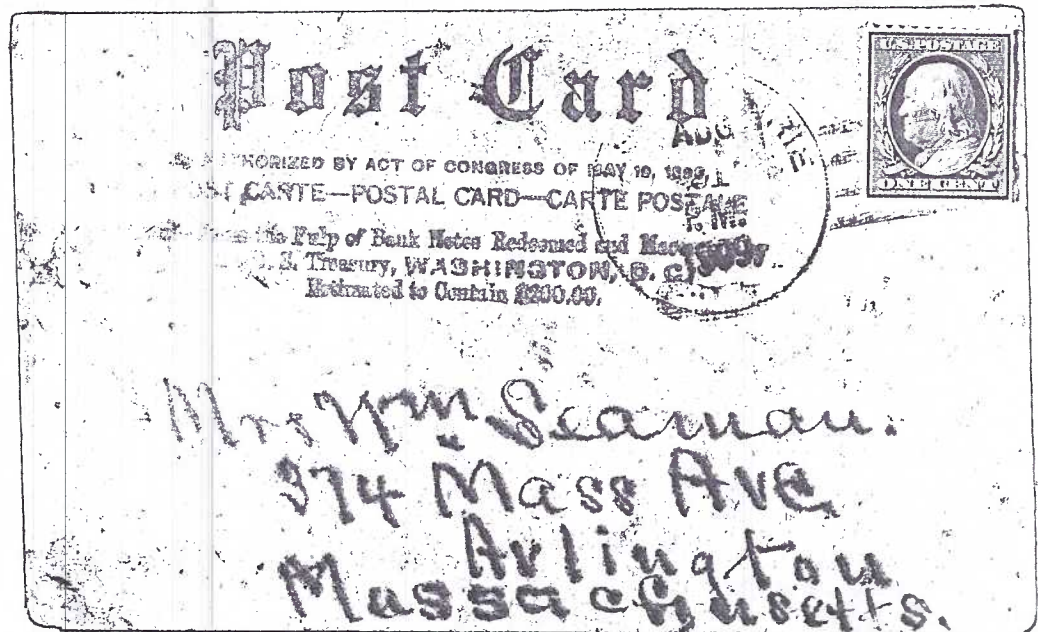 Post Card
U.S. POSTAGE
ONE CENT
AUTHORIZED BY ACT OF CONGRESS OF MAY 19, 1898,
CARTE—POSTAL CARD—CARTE POSTALE
Pulp of Bank Notes Redeemed and
S. Treasury, WASHINGTON, D. C.
Estimated to Contain $200.00.
AUG
31
1909
Mrs Wm Seaman.
374 Mass Ave
Arlington
Massachusetts.